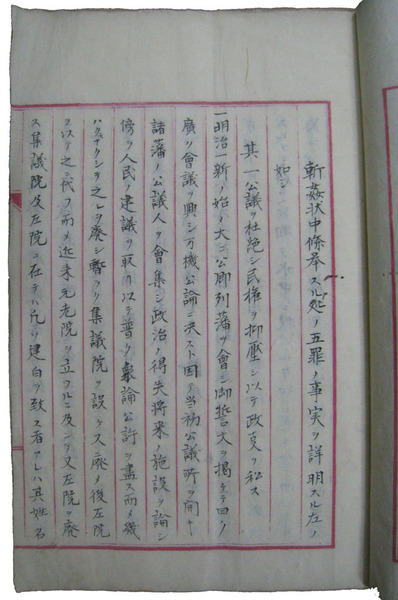 斬姦状中條挙スル処ノ五罪ノ事実ヲ詳明スル左ノ
如シ
其一公議ヲ杜絶シ民権ヲ抑壓シ以テ政支ヲ私ス
一明治一新ノ始メ大ニ公卿列藩ヲ會シ御誓文ヲ掲ケテ曰ク
廣ク會議ヲ興シ万機公論ニ決スト因テ当初公議所ヲ開キ
諸藩ノ公議人ヲ會集シ政治ノ得失将来ノ施設ヲ論シ
傍ラ人民ノ建議ヲ取リ以テ普ク衆論公評ヲ盡ス而メ幾
ハクナクシテ之レヲ廃シ暫ク集議院ヲ設ケスニ廃メ後左院
ヲ以テ之ニ代フ而メ近来元老院ヲ立ツルニ及ンテ又左院ヲ廃
ス集議院及左院ニ在テハ凡ソ建白ヲ致ス者アレハ其姓名